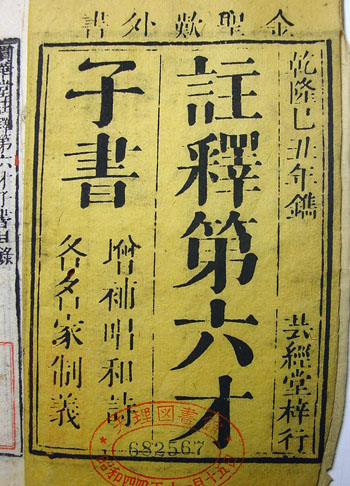 金聖歎外書
乾隆己丑年鐫
芸經堂梓行
註釋第六才
子書
增補唱和詩
各名家制義
註釋第六才子書目錄
理図書
682567
昭和四四年十一月十五日